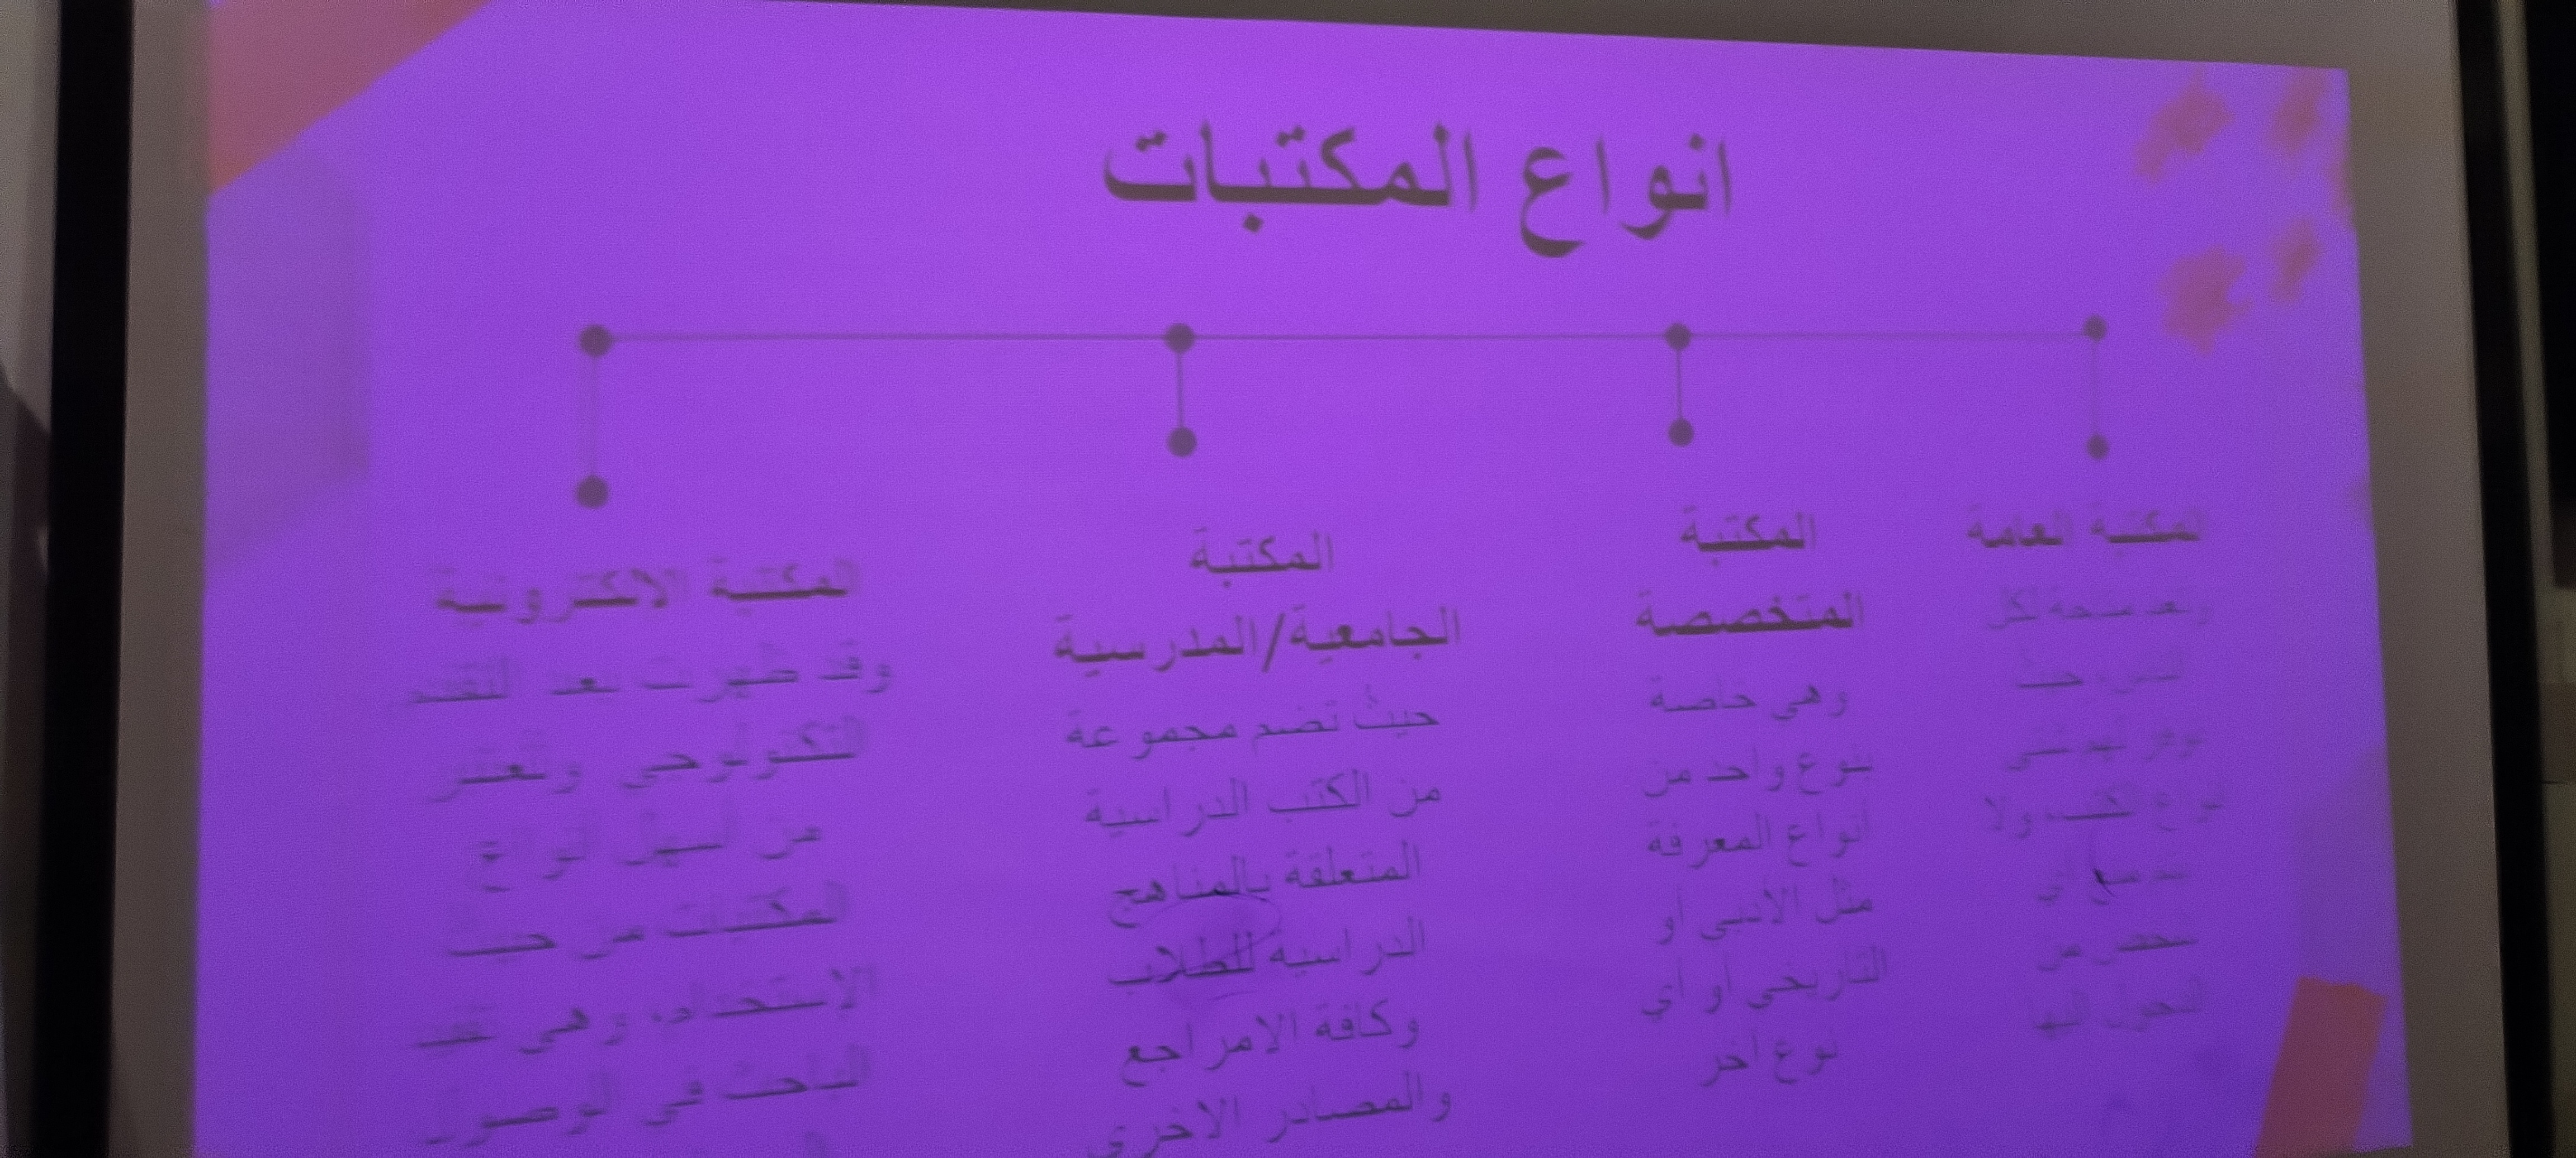 انواع المكتبات
المكتبة العامة
وتعد متاحة لكل
الناس، حيث
توفر لهم شتى
انواع الكتب، ولا
تمنع أي
شخص من
الدخول اليها
المكتبة
المتخصصة
وهى خاصة
بنوع واحد من
أنواع المعرفة
مثل الأدبى أو
التاريخى أو أي
نوع أخر
المكتبة
الجامعية/المدرسية
حيث تضم مجموعة
من الكتب الدراسية
المتعلقة بالمناهج
الدراسية للطلاب
وكافة الامراجع
والمصادر الاخرى
المكتبة الالكترونية
وقد ظهرت بعد التقدم
التكنولوجى وتعتبر
من أسهل انواع
المكتبات من حيث
الاستخدام، وهى تفيد
الباحث فى الوصول